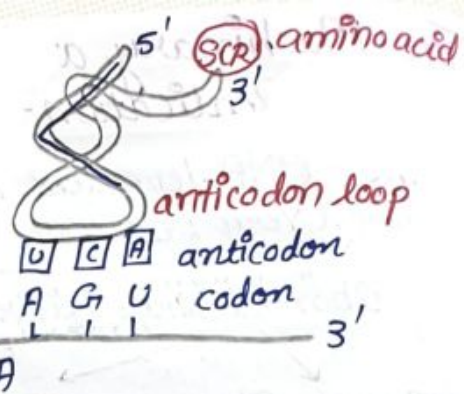 5' SCR amino acid
3'
anticodon loop
U C A anticodon
A G U codon
3'
A